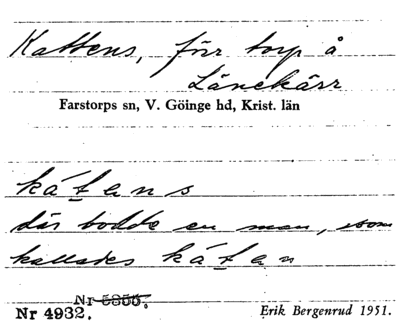 Kattens, förr torp å
Länekärr
Farstorps sn, V. Göinge hd, Krist. län
ká̱tans
där bodde en man, som
kallades ká̱tan
Nr 5355.
Nr 4932.
Erik Bergenrud 1951.